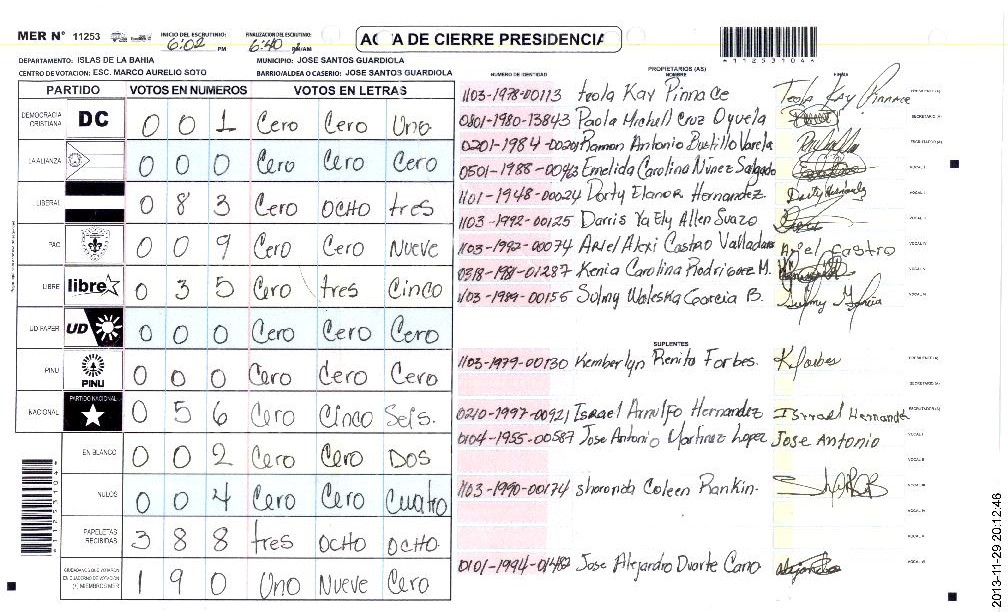 MER Nº 11253
INICIO DEL ESCRUTINIO: 6:02 PM
FINALIZACION DEL ESCRUTINIO: 6:40 PM/AM
ACTA DE CIERRE PRESIDENCIA
*11253104*
DEPARTAMENTO: ISLAS DE LA BAHIA
MUNICIPIO: JOSE SANTOS GUARDIOLA
CENTRO DE VOTACION: ESC. MARCO AURELIO SOTO
BARRIO/ALDEA O CASERIO: JOSE SANTOS GUARDIOLA
PARTIDO VOTOS EN NUMEROS VOTOS EN LETRAS
DEMOCRACIA CRISTIANA DC 0 0 1 Cero Cero Uno
LA ALIANZA 0 0 0 Cero Cero Cero
LIBERAL 0 8 3 Cero OCHO tres
PAC 0 0 9 Cero Cero Nueve
LIBRE libre 0 3 5 Cero tres Cinco
UD FAPER UD 0 0 0 Cero Cero Cero
PINU PINU 0 0 0 Cero Cero Cero
NACIONAL PARTIDO NACIONAL 0 5 6 Cero Cinco Seis.
EN BLANCO 0 0 2 Cero Cero Dos
NULOS 0 0 4 Cero Cero Cuatro
PAPELETAS RECIBIDAS 3 8 8 tres OCHO OCHO
CIUDADANOS QUE VOTARON EN CUADERNO DE VOTACION (+) MIEMBROS MER 1 9 0 Uno Nueve Cero
NUMERO DE IDENTIDAD PROPIETARIOS (AS) NOMBRE FIRMAS
1103-1978-00113 teola Kay Pinnace Teola Kay Pinnace PRESIDENTE (A)
0801-1980-13843 Paola Michell Cruz Oyuela SECRETARIO (A)
0201-1984-00201 Ramon Antonio Bustillo Varela ESCRUTADOR (A)
0501-1988-00463 Emelida Carolina Nunez Salgado VOCAL I
1101-1948-00024 Dorty Elanor Hernandez. Dorty Hernandez VOCAL II
1103-1992-00125 Darris Ya Ely Allen Suazo VOCAL III
1103-1992-00074 Ariel Alexi Castro Valladares Ariel Castro VOCAL IV
0318-1981-01287 Kenia Carolina Rodriguez M. VOCAL V
1103-1989-00155 Sulmy Waleska Garcia B. Sulmy Garcia VOCAL VI
SUPLENTES
1103-1979-00130 Kemberlyn Renita Forbes. K forbes PRESIDENTE (A)
SECRETARIO (A)
0210-1997-00921 Israel Arnulfo Hernandez Israel Hernandez ESCRUTADOR (A)
0104-1955-00587 Jose Antonio Martinez Lopez Jose Antonio VOCAL I
VOCAL II
1103-1990-00174 Sharonda Coleen Rankin. VOCAL III
VOCAL IV
VOCAL V
0101-1994-01482 Jose Alejandro Duarte Cano Alejandro VOCAL VI
*11253104*
2013-11-29 20:12:46